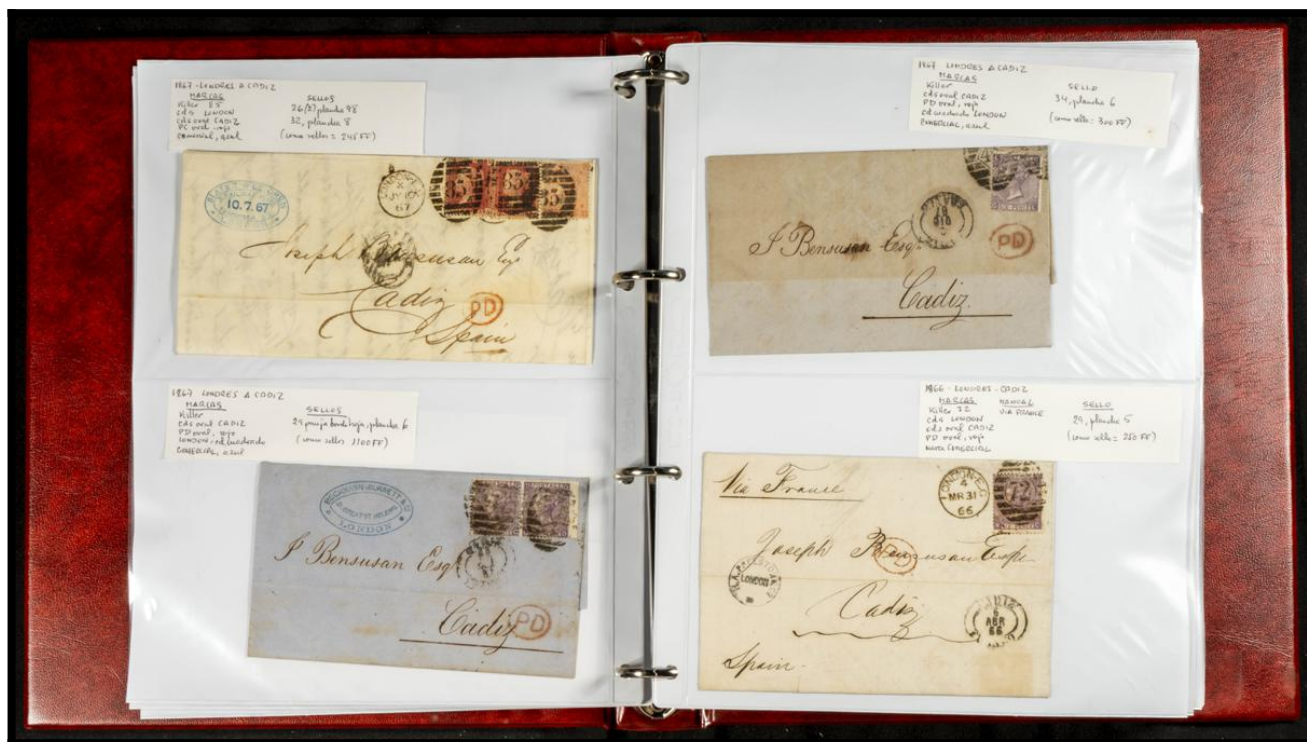 1867 - LONDRES A CADIZ
MARCAS
Killer 85
cds LONDON
cds oval CADIZ
PD oval, rojo
comercial, azul
SELLOS
26(2) plancha 98
32, plancha 8
(como sellos = 245 FF)
10.7.67
85
85
85
67
Joseph Bensusan Esq
Cadiz
PD
Spain
1867 LONDRES A CADIZ
MARCAS
Killer
cds oval CADIZ
PD oval, rojo
LONDON
COMERCIAL, azul
SELLOS
29 pareja borde hoja, plancha 6
(como sellos 1100 FF)
BURNETT & Co
GREAT ST HELENS
LONDON
J Bensusan Esqr
Cadiz
PD
1867 LONDRES A CADIZ
MARCAS
Killer
cds oval CADIZ
PD oval, rojo
cd cuadrado LONDON
COMERCIAL, azul
SELLO
34, plancha 6
(como sello = 300 FF)
J Bensusan Esqr
PD
Cadiz.
1866 - LONDRES - CADIZ
MARCAS
Killer 72
cds LONDON
cds oval CADIZ
PD oval, rojo
COMERCIAL
MANUAL
VIA FRANCE
SELLO
29, plancha 5
(como sello = 250 FF)
Via France
LONDON-E.C
4
MR 31
66
72
Joseph Bensusan Esqre
PD
LONDON
Cadiz
CADIZ
5
ABR
66
Spain.